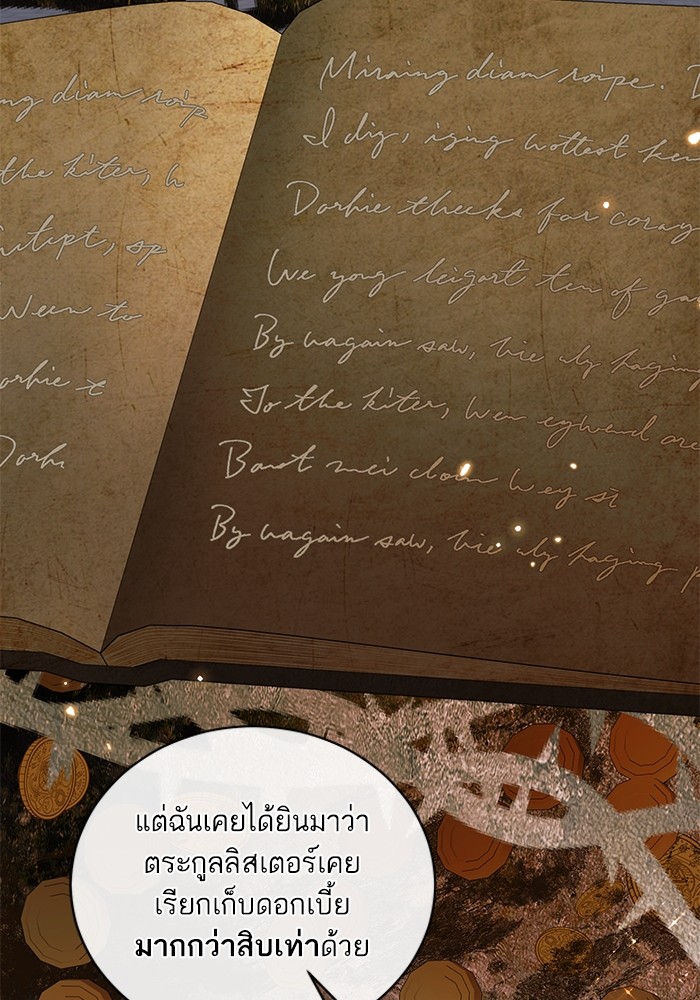 ng diam roip
the kiter, h
Ween to
orhie t
Dorh
Miraing diam roipe.
I dig, iging wottest
Dorhie thecks for coray
We yong leigart ten of ga
By vagain saw, hie uly haging
To the kiter, Wen eywend are
Baust mei cloin Wey si
By vagain saw, hie uly haging p
แต่ฉันเคยได้ยินมาว่า
ตระกูลลิสเตอร์เคย
เรียกเก็บดอกเบี้ย
มากกว่าสิบเท่าด้วย